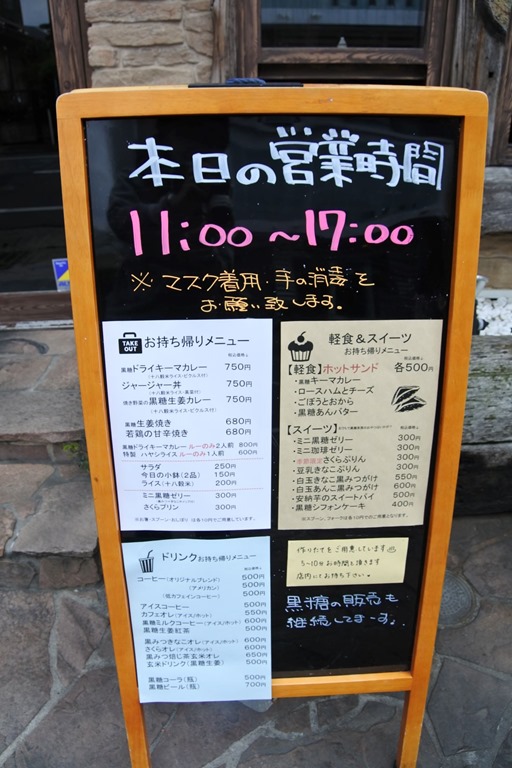 本日の営業時間
11:00～17:00
※ マスク着用・手の消毒を
お願い致します。
TAKE OUT
お持ち帰りメニュー
黒糖ドライキーマカレー 750円
(十八穀米ライス・ピクルス付)
ジャージャー丼 750円
焼き野菜の黒糖生姜カレー 750円
(十八穀米ライス・ピクルス付)
黒糖生姜焼き 680円
若鶏の甘辛焼き 680円
黒糖ドライキーマカレー ルーのみ2人前 800円
特製 ハヤシライス ルーのみ1人前 600円
サラダ 250円
今日の小鉢(2品) 150円
ライス(十八穀米) 200円
ミニ黒糖ゼリー 300円
さくらプリン 300円
軽食＆スイーツ
お持ち帰りメニュー
【軽食】ホットサンド 各500円
・黒糖キーマカレー
・ロースハムとチーズ
・ごぼうとおから
・黒糖あんバター
【スイーツ】
・ミニ黒糖ゼリー 300円
・ミニ珈琲ゼリー 300円
・季節限定さくらぷりん 300円
・豆乳きなこぷりん 300円
・白玉きなこ黒みつがけ 550円
・白玉あんこ黒みつがけ 600円
・安納芋のスイートパイ 500円
・黒糖シフォンケーキ 400円
※スプーン、フォークは各10円でのご用意となります。
ドリンクお持ち帰りメニュー
コーヒー(オリジナルブレンド) 500円
(アメリカン) 500円
(低カフェインコーヒー) 500円
アイスコーヒー 500円
カフェオレ(アイス/ホット) 550円
黒糖ミルクコーヒー(アイス/ホット) 600円
黒糖生姜紅茶 500円
黒みつきなこオレ(アイス/ホット) 600円
さくらオレ(アイス/ホット) 600円
黒みつ焙じ茶玄米オレ 650円
玄米ドリンク(黒糖生姜) 500円
黒糖コーラ(瓶) 500円
黒糖ビール(瓶) 700円
作りたてをご用意しています
5～10分お時間を頂きます
店内にてお待ち下さい。
黒糖の販売も
継続してまーす。